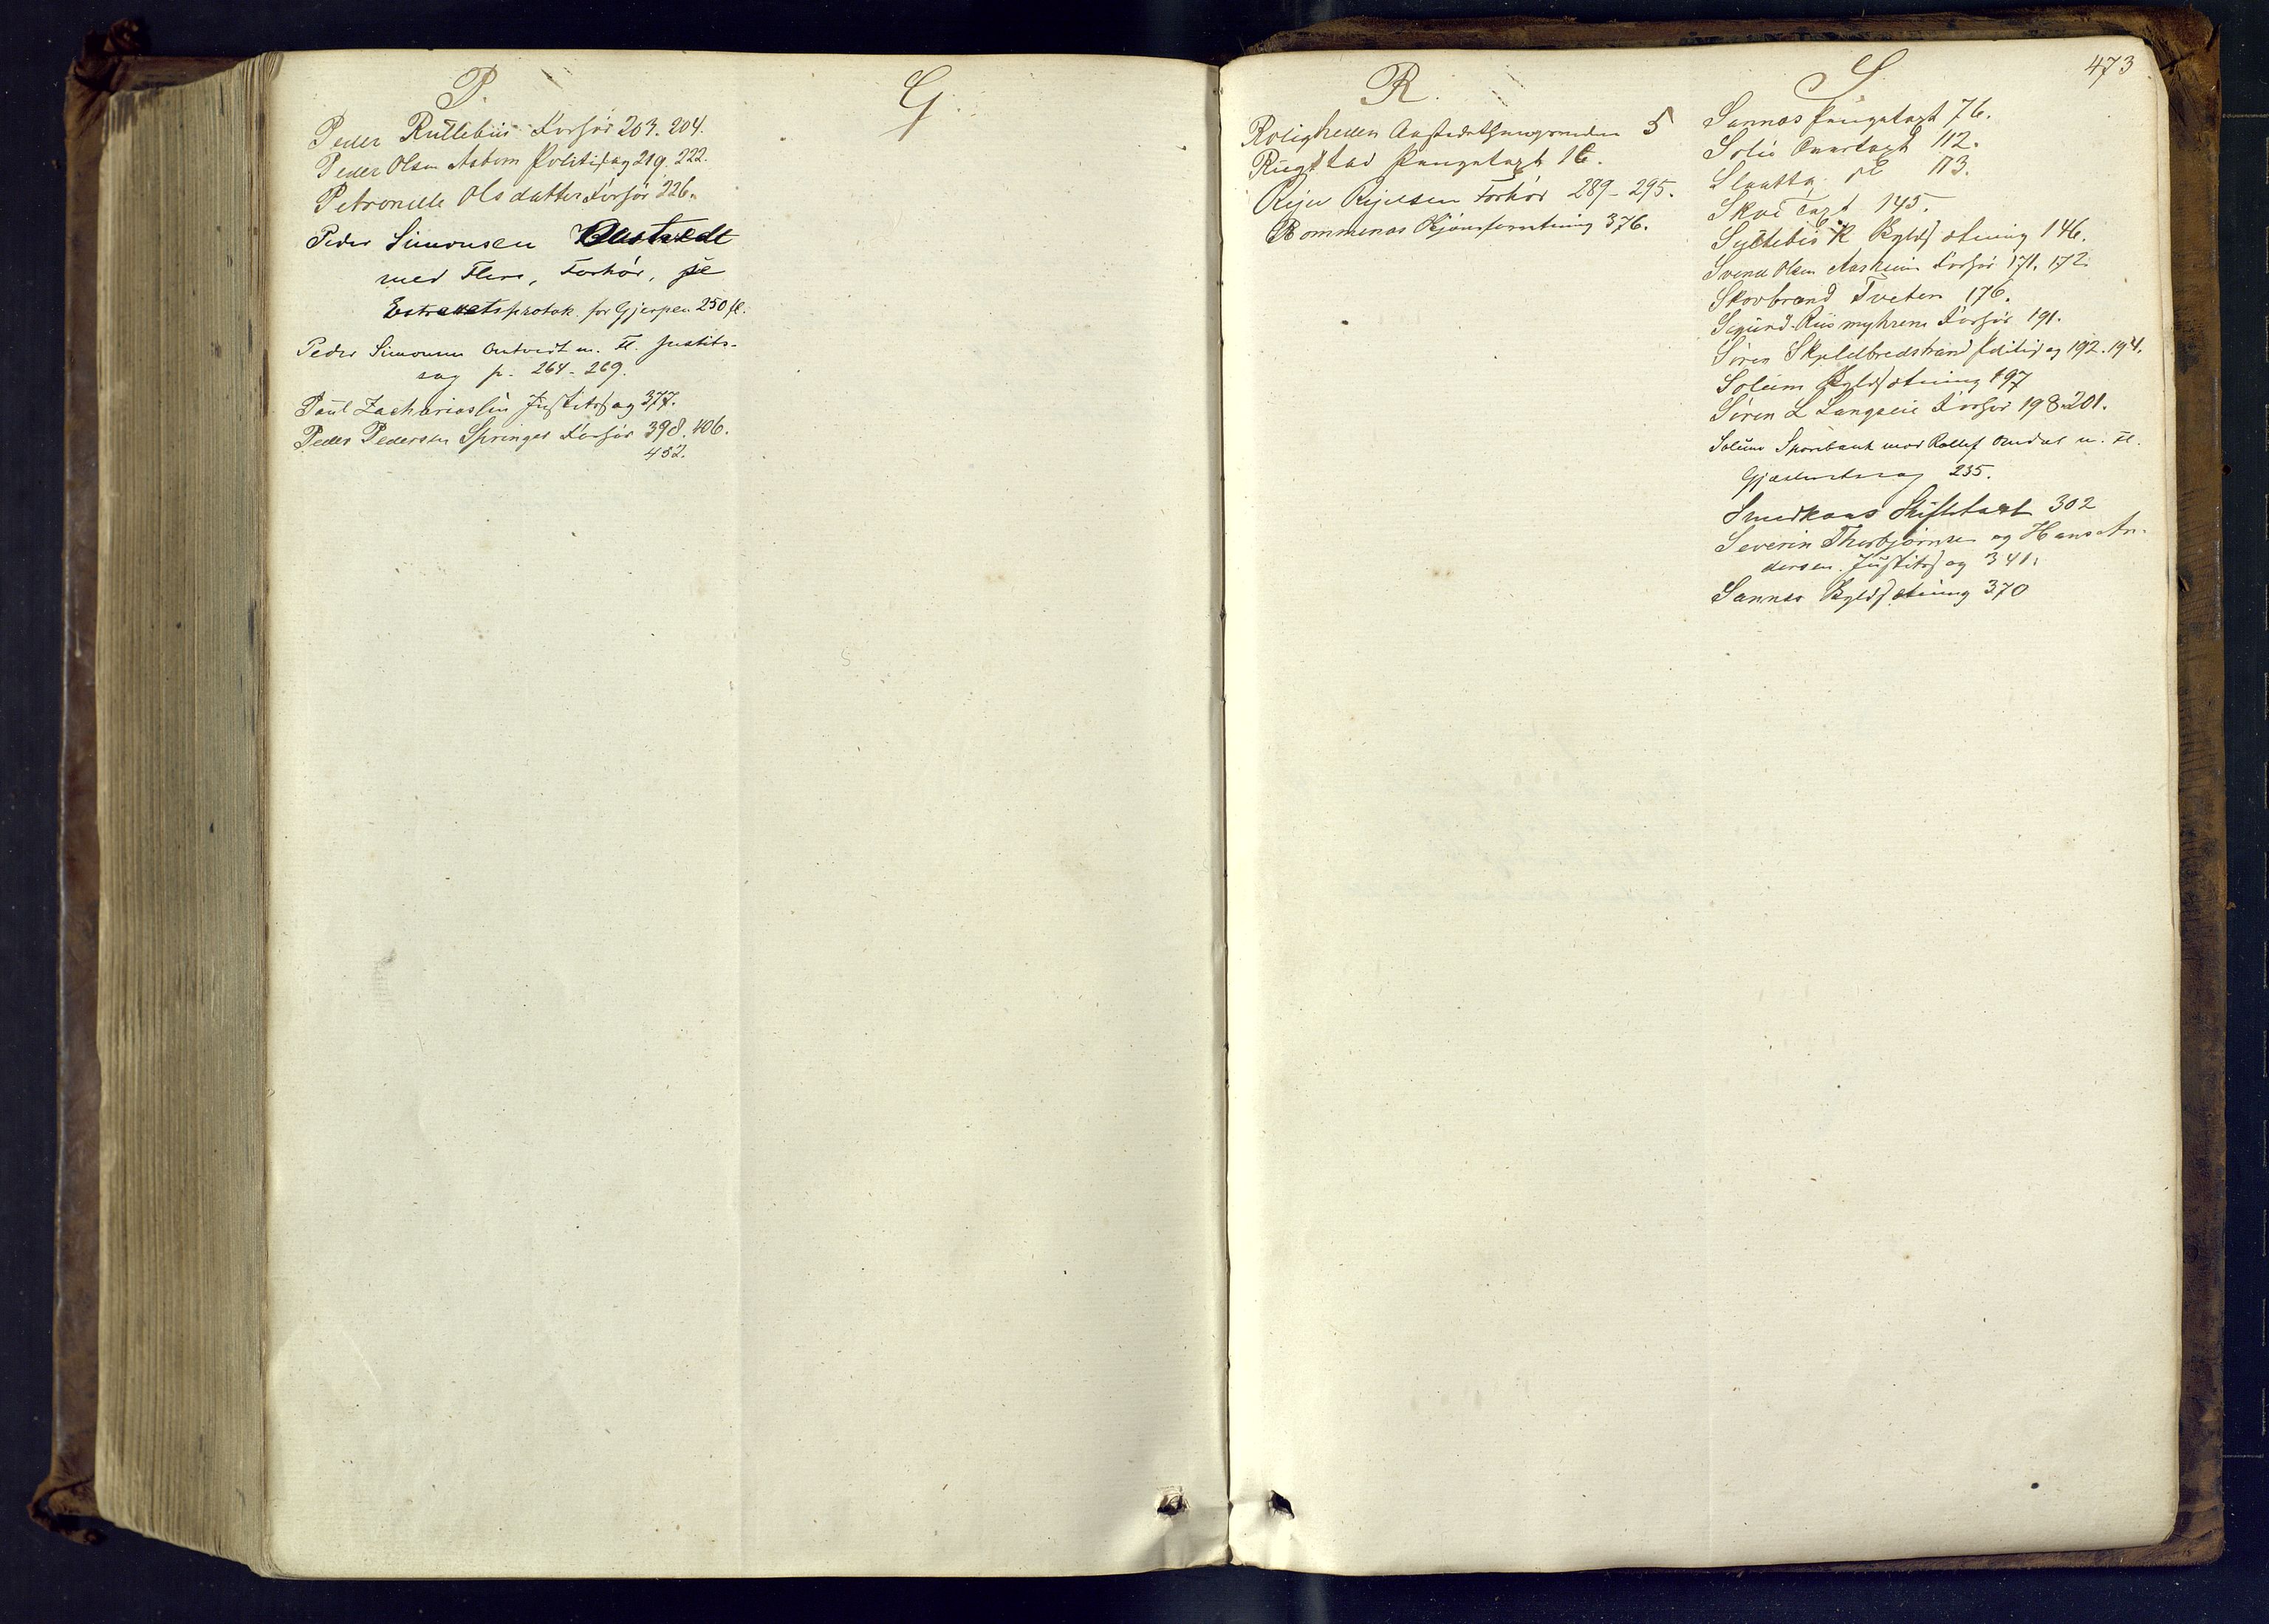 P.
Peder Rullebiis Forhør 203. 204.
Peder Olsen Aabom Politisag 219. 222.
Petronelle Olsdatter Forhør 226.
Peder Simonsen
med Flere, Forhør, se
Extraretsprotok. for Gjerpen 250 fl.
Peder Simonsen Ontvedt m. Fl. Justits-
sag p. 264-269.
Paul Zachariassen Justitssag 377.
Peder Pedersen Springer Forhør 398. 406.
452.
Q.
R.
Roligheden 5
Rugstad Pangetaxt 16.
Rejer Rejersen Forhør 289-295.
Rommenæs Skjønsforretning 376.
S.
473
Sannæs Pangetaxt 76.
Solie 112.
Slaatta 113.
Skoe Taxt 145.
Bygdsætning 146.
Svend Olsen Aasheim Forhør 171. 172.
Skovbrand Tveten 176.
Sigund Riismyhrene Forhør 191.
Søren Skyldbredstrand Politisag 192. 194.
Solum 197
Søren L Langseie Forhør 198-201.
Solum Sparebank mod Rollef Omdal m. Fl.
Gjældssag 235.
Smedkaas Skiftetaxt 302
Severin Thorbjørnsen og Hans An-
dersen. Justitssag 341.
Sannes 370